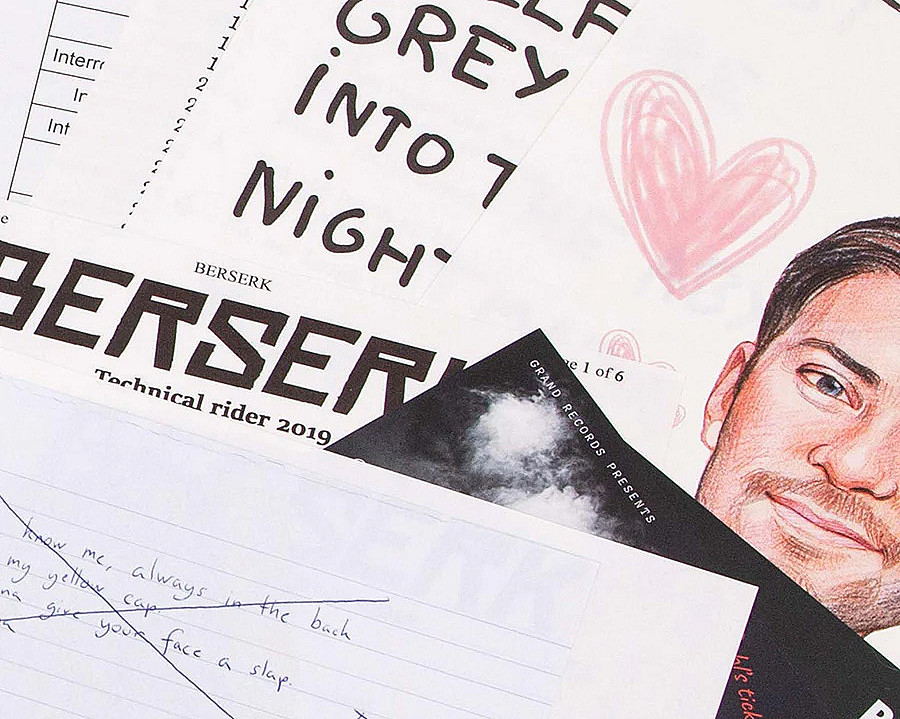 GREY
INTO
NIGHT
Interro
In
Int
1
1
1
2
2
2
BERSERK
BERSERK
Technical rider 2019
1 of 6
GRAND RECORDS PRESENTS
know me, always in the back
my yellow cap.
give your face a slap.